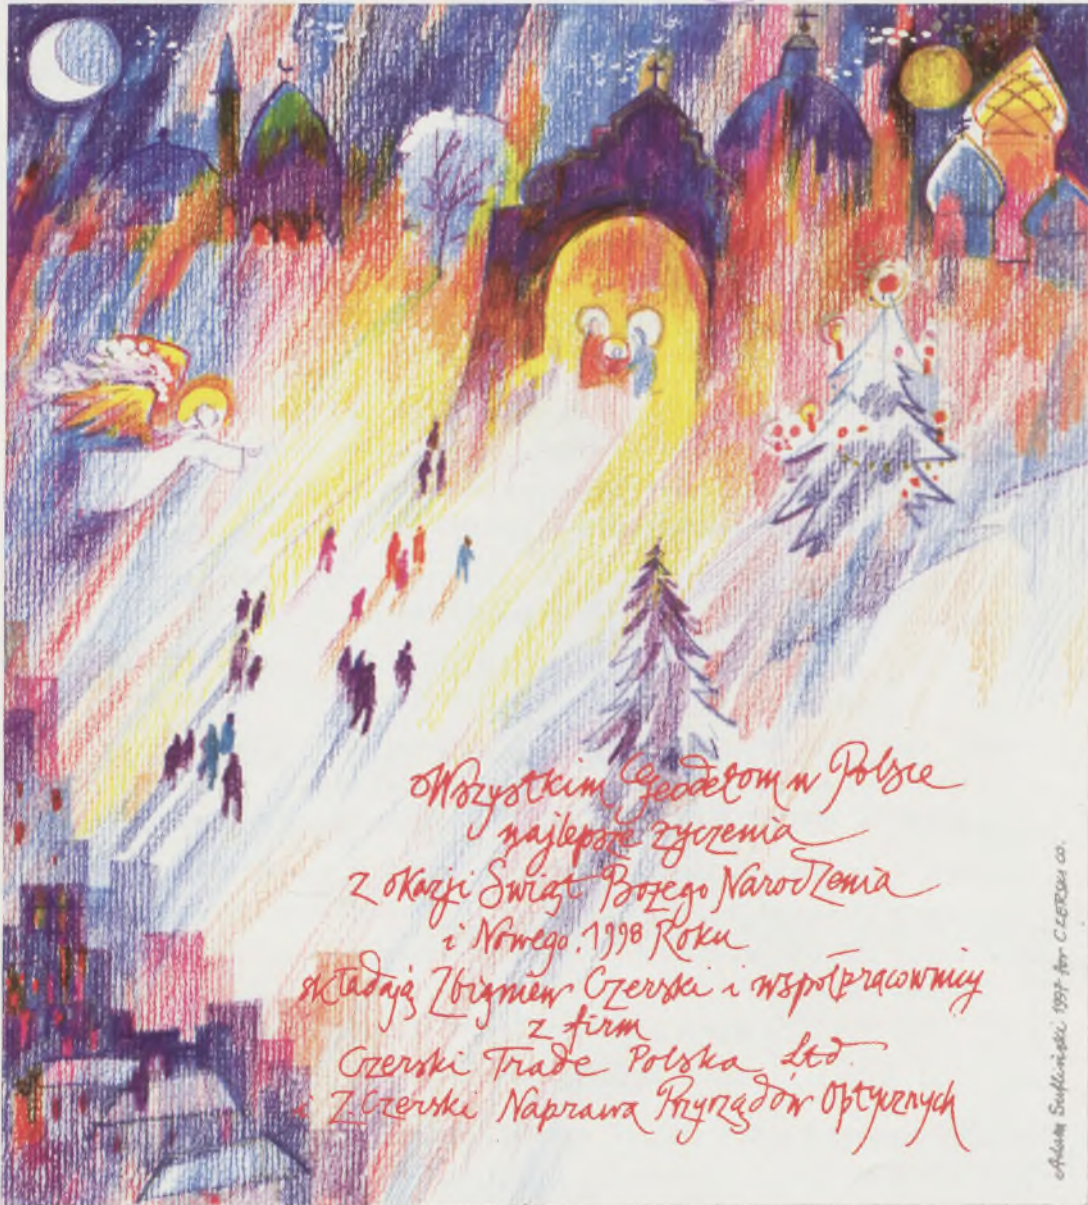 Wszystkim Geodetom w Polsce
najlepsze życzenia
z okazji Świąt Bożego Narodzenia
i Nowego 1998 Roku
składają Zbigniew Czerski i współpracownicy
z firm
Czerski Trade Polska Ltd.
Z. Czerski Naprawa Przyrządów Optycznych
Adam 1997 for CZERSKI CO.